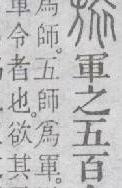 旅軍之五百
爲師。五師爲軍。
軍令者也。欲其